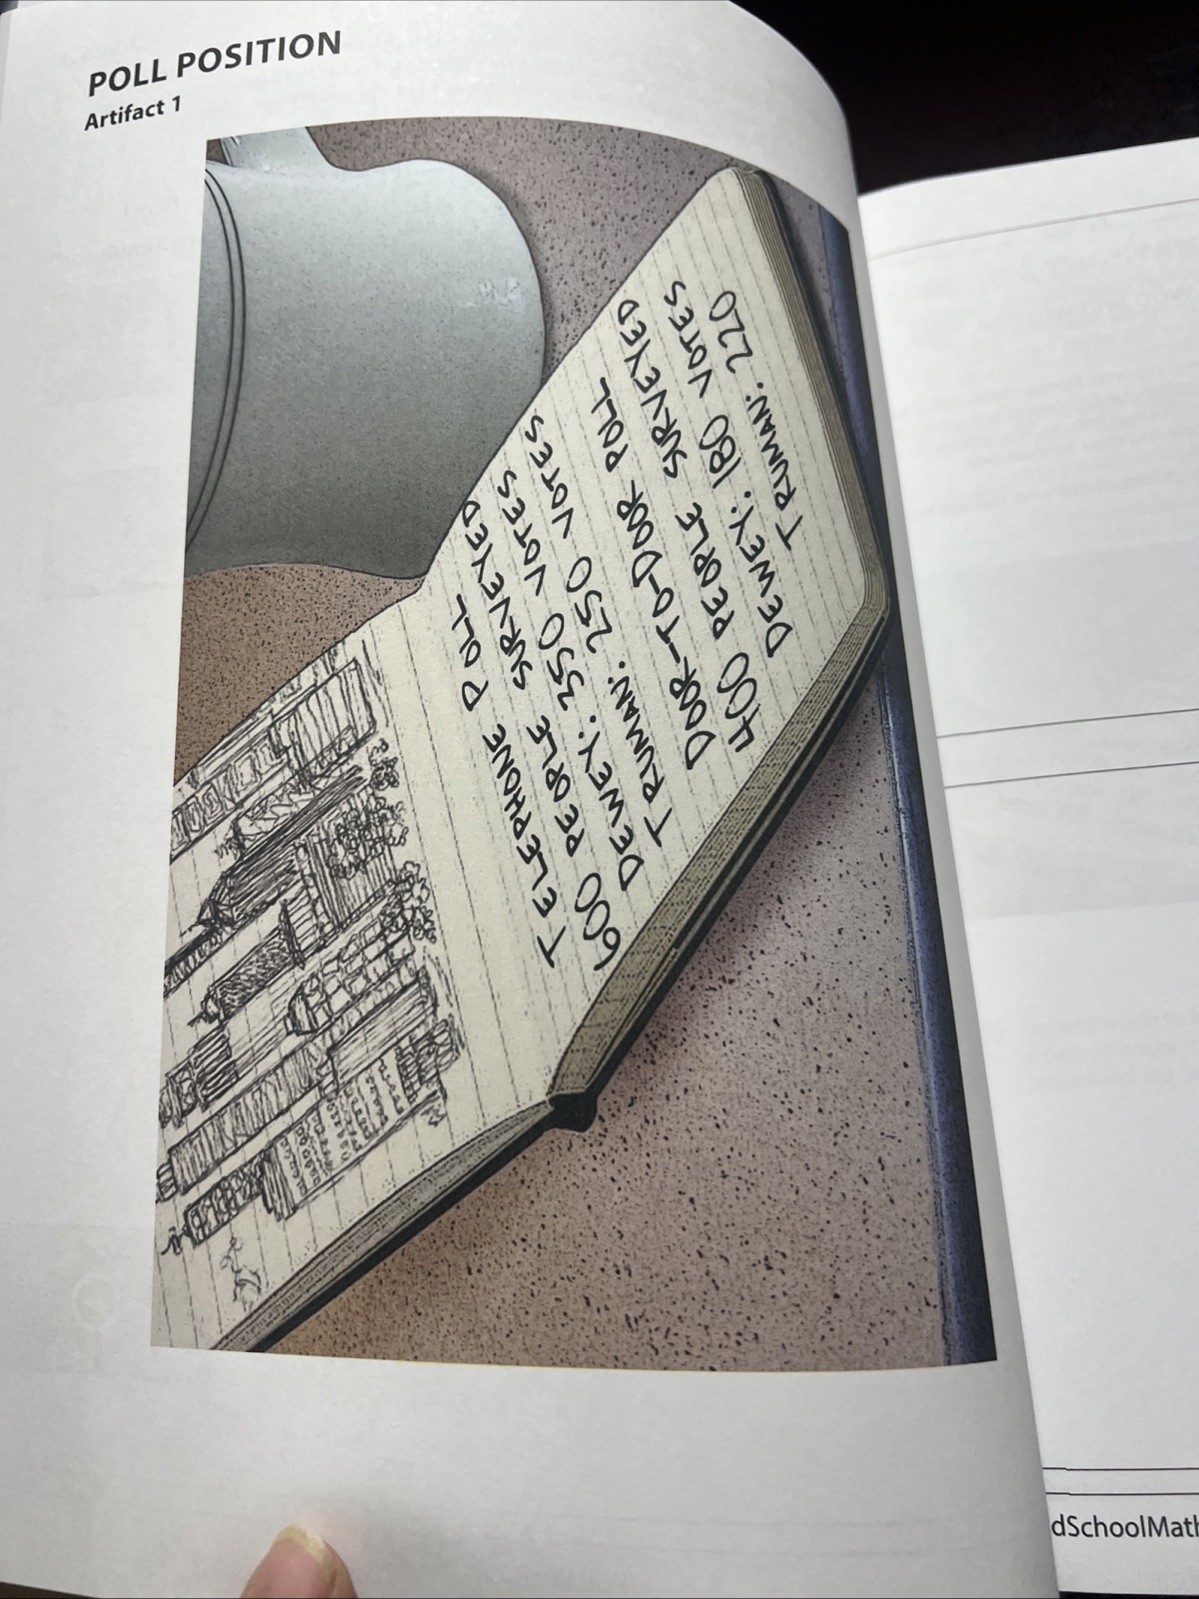 POLL POSITION
Artifact 1
TELEPHONE POLL
600 PEOPLE SURVEYED
DEWEY: 350 VOTES
TRUMAN: 250 VOTES
DOOR-TO-DOOR POLL
400 PEOPLE SURVEYED
DEWEY: 180 VOTES
TRUMAN: 220
dSchoolMath